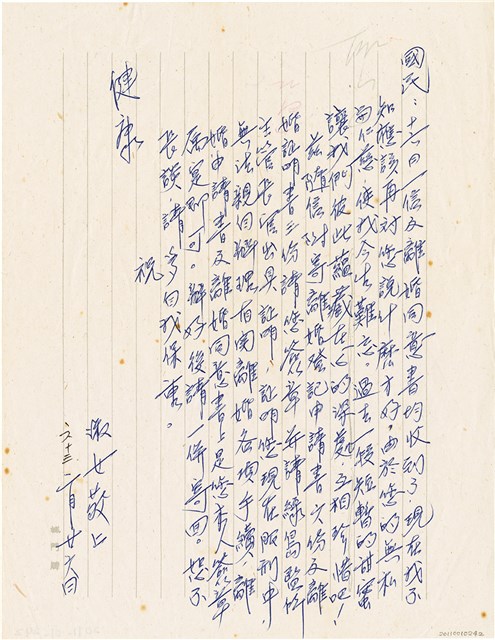 國民：十六日信及離婚同意書均收到了，現在我不
知應該再對您說什麼才好，由於您的無私
與仁慈，使我今生難忘。過去一段短暫的甜蜜
讓我們彼此蘊藏在心的深處，互相珍惜吧！
茲隨信附寄離婚登記申請書六份及離
婚証明書三份請您簽章並請綠島監獄
主管長官出具証明，証明您現在服刑中，
無法親自辦理有關離婚各項手續，離
婚申請書及離婚同意書上是您本人簽章
屬實即可。辦好後請一併寄回。恕不
長談 請多自我保重。
祝
健康
淑女敬上
六十三、一月廿六日